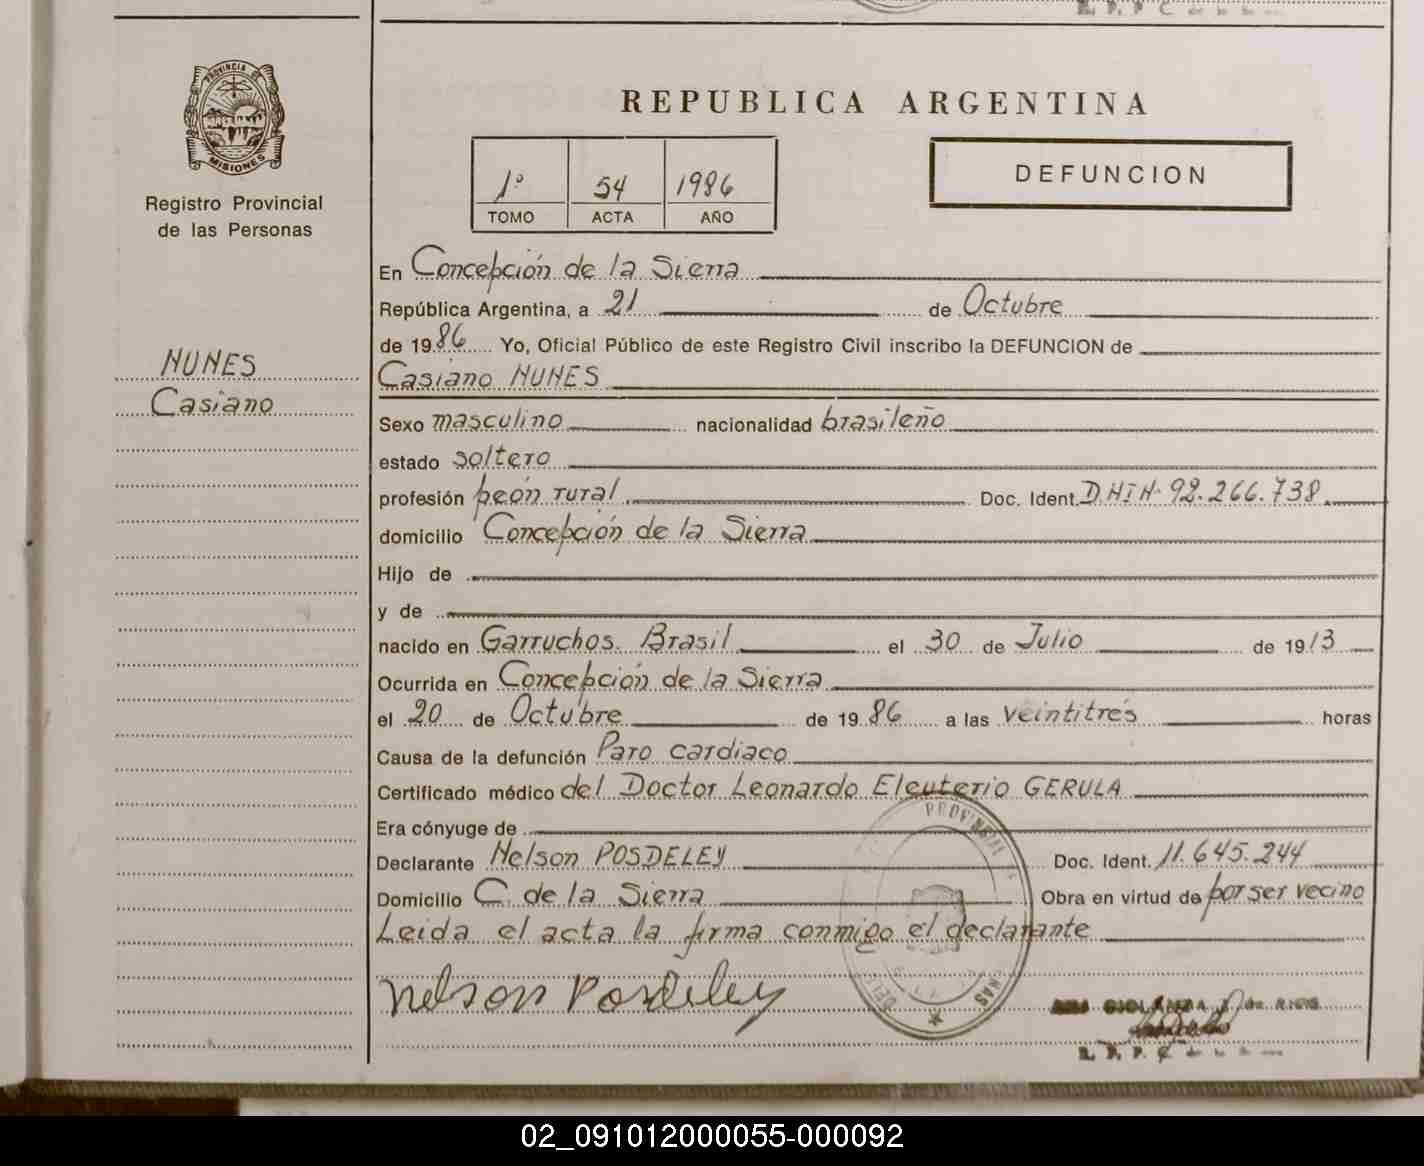 PROVINCIA DE
MISIONES
Registro Provincial
de las Personas
NUNES
Casiano
REPUBLICA ARGENTINA
1º 54 1986
TOMO ACTA AÑO
DEFUNCION
En Concepción de la Sierra
República Argentina, a 21 de Octubre
de 1986 Yo, Oficial Público de este Registro Civil inscribo la DEFUNCION de
Casiano NUNES
Sexo masculino nacionalidad brasileño
estado soltero
profesión peón rural Doc. Ident. D.N.I.N. 92.266.738
domicilio Concepción de la Sierra
Hijo de
y de
nacido en Garruchos. Brasil el 30 de Julio de 1913
Ocurrida en Concepción de la Sierra
el 20 de Octubre de 1986 a las veintitrés horas
Causa de la defunción Paro cardiaco
Certificado médico del Doctor Leonardo Eleuterio GERULA
Era cónyuge de
Declarante Nelson POSDELEY Doc. Ident. 11.645.244
Domicilio C. de la Sierra Obra en virtud de por ser vecino
Leida el acta la firma conmigo el declarante
Nelson Posdeley
PROVINCIAL
02_091012000055-000092